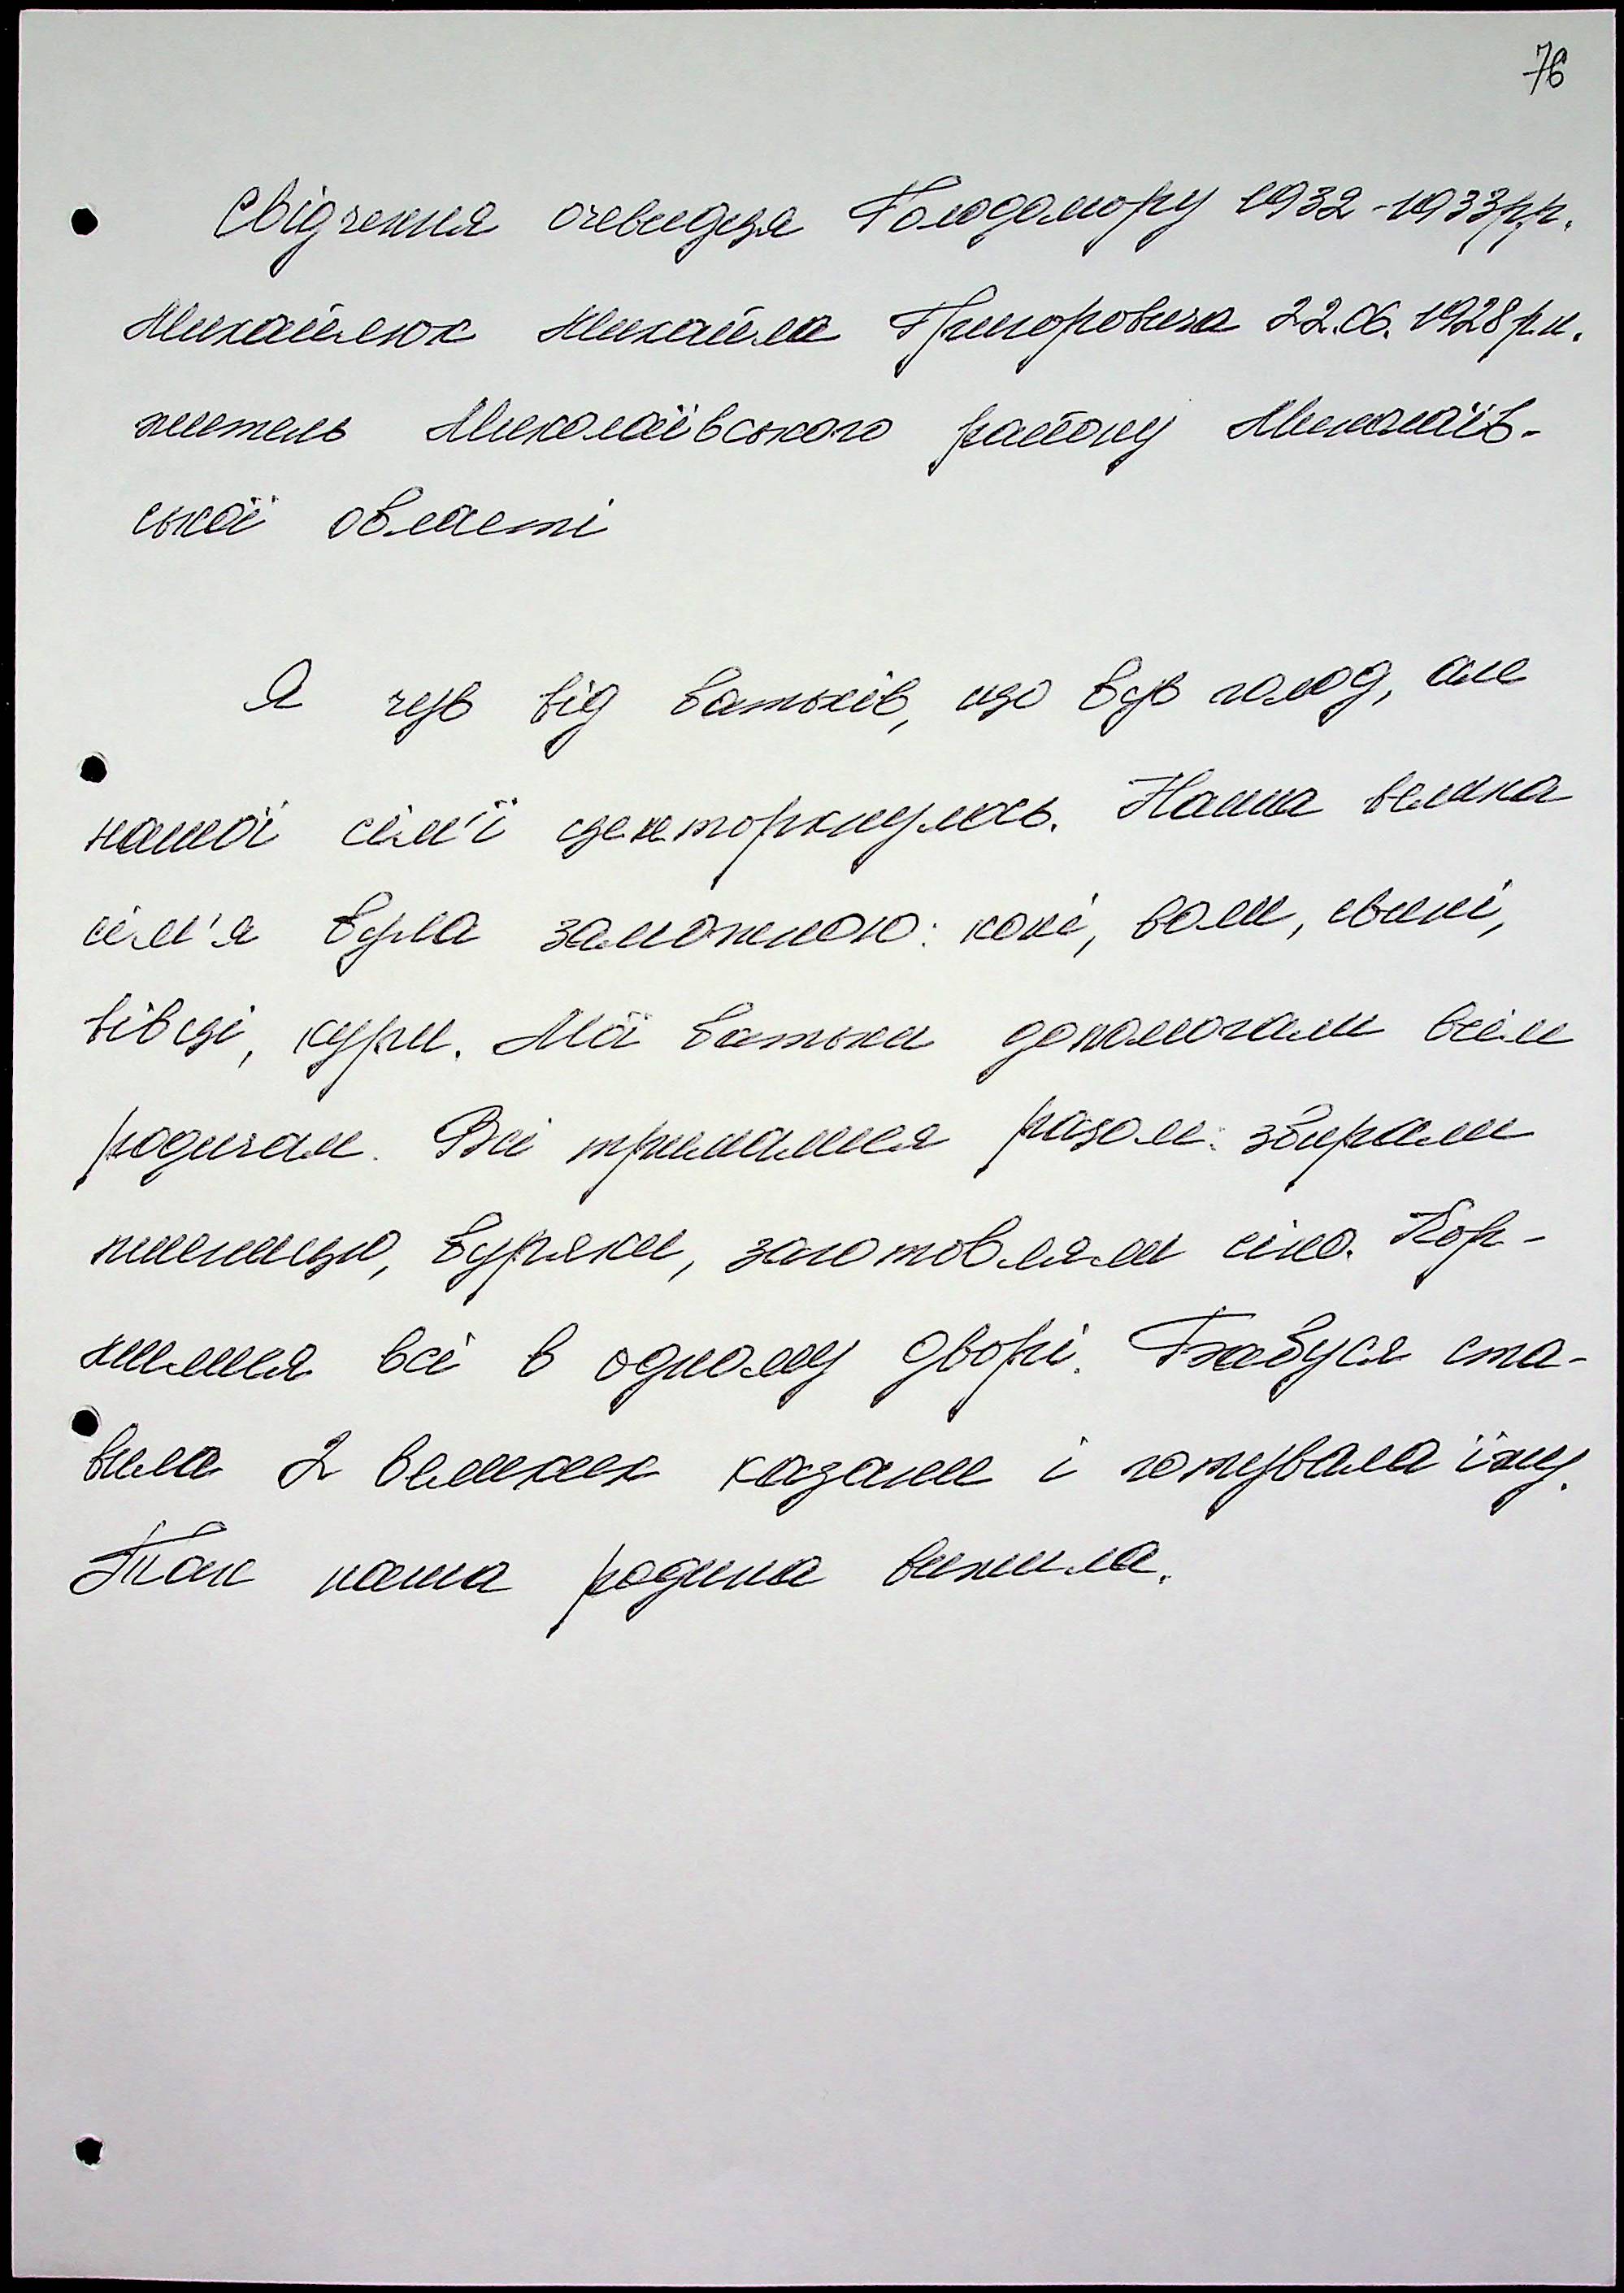 76
Свідчення очевидця Голодомору 1932-1933рр.
Михайлюк Михайла Григоровича 22.06.1928р.н.
житель Миколаївського району Миколаїв-
ської області
Я чув від батьків, що був голод, але
нашої сім'ї це не торкнулось. Наша велика
сім'я була заможною: коні, воли, свині,
вівці, кури. Мої батьки допомогали всім
родичам. Всі трималися разом: збирали
пшеницю, буряки, заготовляли сіно. Кор-
милися всі в одному дворі. Бабуся ста-
вила 2 великих казани і готувала їжу.
Так наша родина вижила.